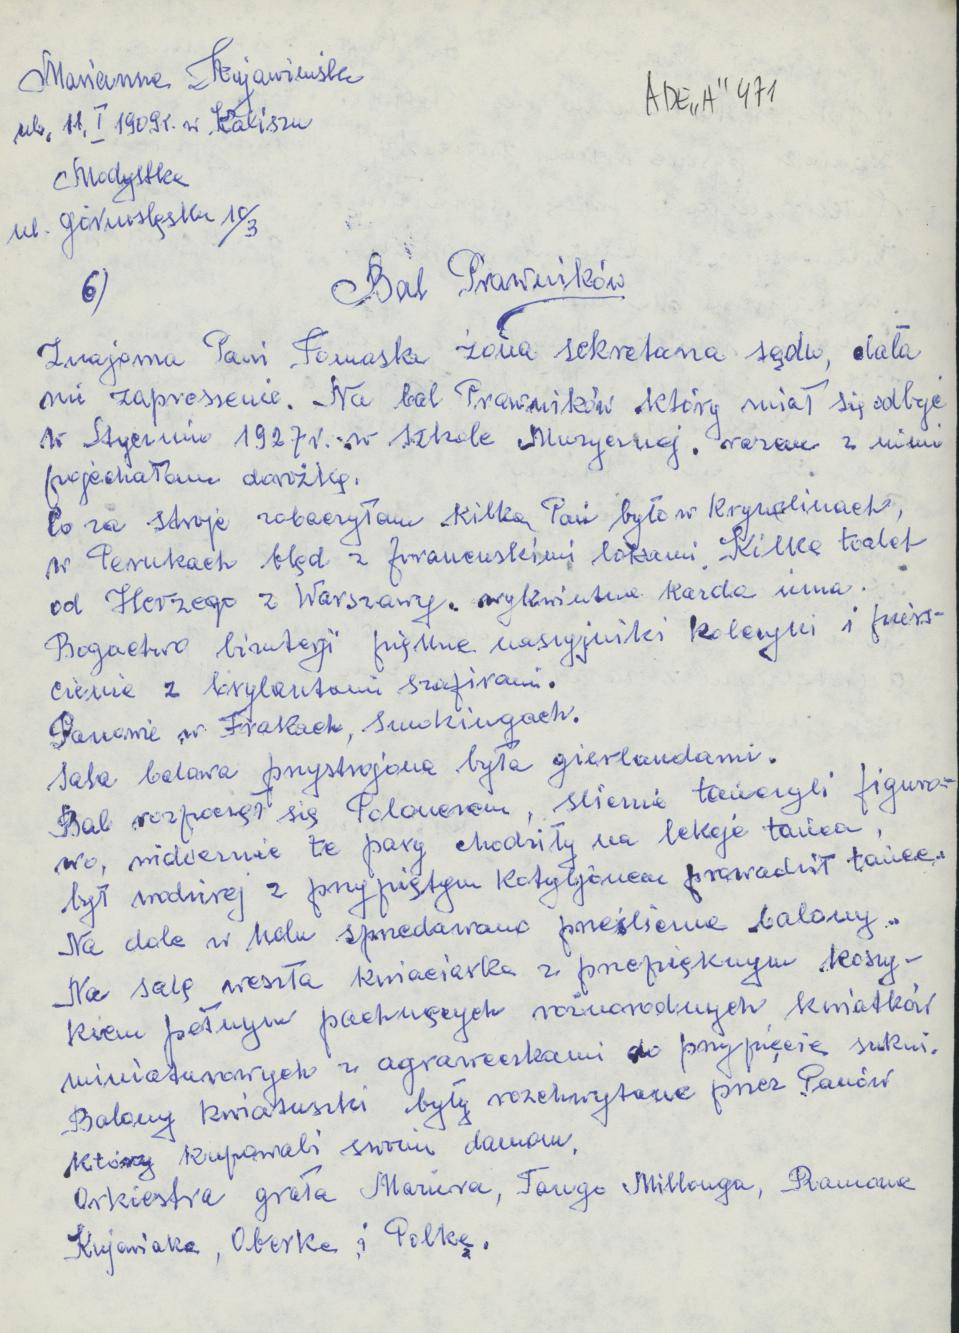 Marianna Kujawińska
ADE „A" 471
ur. 11. I 1909r. w Kaliszu
Modystka
ul. Górnośląska 10/3
6) Bal Prawników
Znajoma Pani Tomaska żona sekretarza sądu, dała
mi zaproszenie. Na bal Prawników który miał się odbyć
w Styczniu 1927r. w szkole Muzycznej. razem z nimi
pojechałam dorożką.
Co za stroje zobaczyłam kilka Pań było w Krynolinach,
w Perukach blęd z francuskimi lokami. Kilka toalet
od Herzego z Warszawy. wykwintna każda inna.
Bogactwo biżuterji piękne naszyjniki kolczyki i pierś-
cienie z brylantami szafirami.
Panowie w Frakach, smokingach.
Sala balowa przystrojona była gierlandami.
Bal rozpoczął się Polonezem, ślicznie tańczyli figuro-
wo, widocznie te pary chodziły na lekcje tańca,
był wodzirej z przypiętym Kotyljonem prowadził tańce.
Na dole w holu sprzedawano prześliczne balony.
Na salę weszła kwiaciarka z przepięknym koszy-
kiem pełnym pachnących różnorodnych kwiatków
miniaturowych z agraweczkami do przypięcia sukni.
Balony kwiatuszki były rozchwytane przez Panów
którzy kupowali swoim damom.
Orkiestra grała Mazura, Tango Millonga, Ramona
Kujawiaka, Oberka i Polkę.